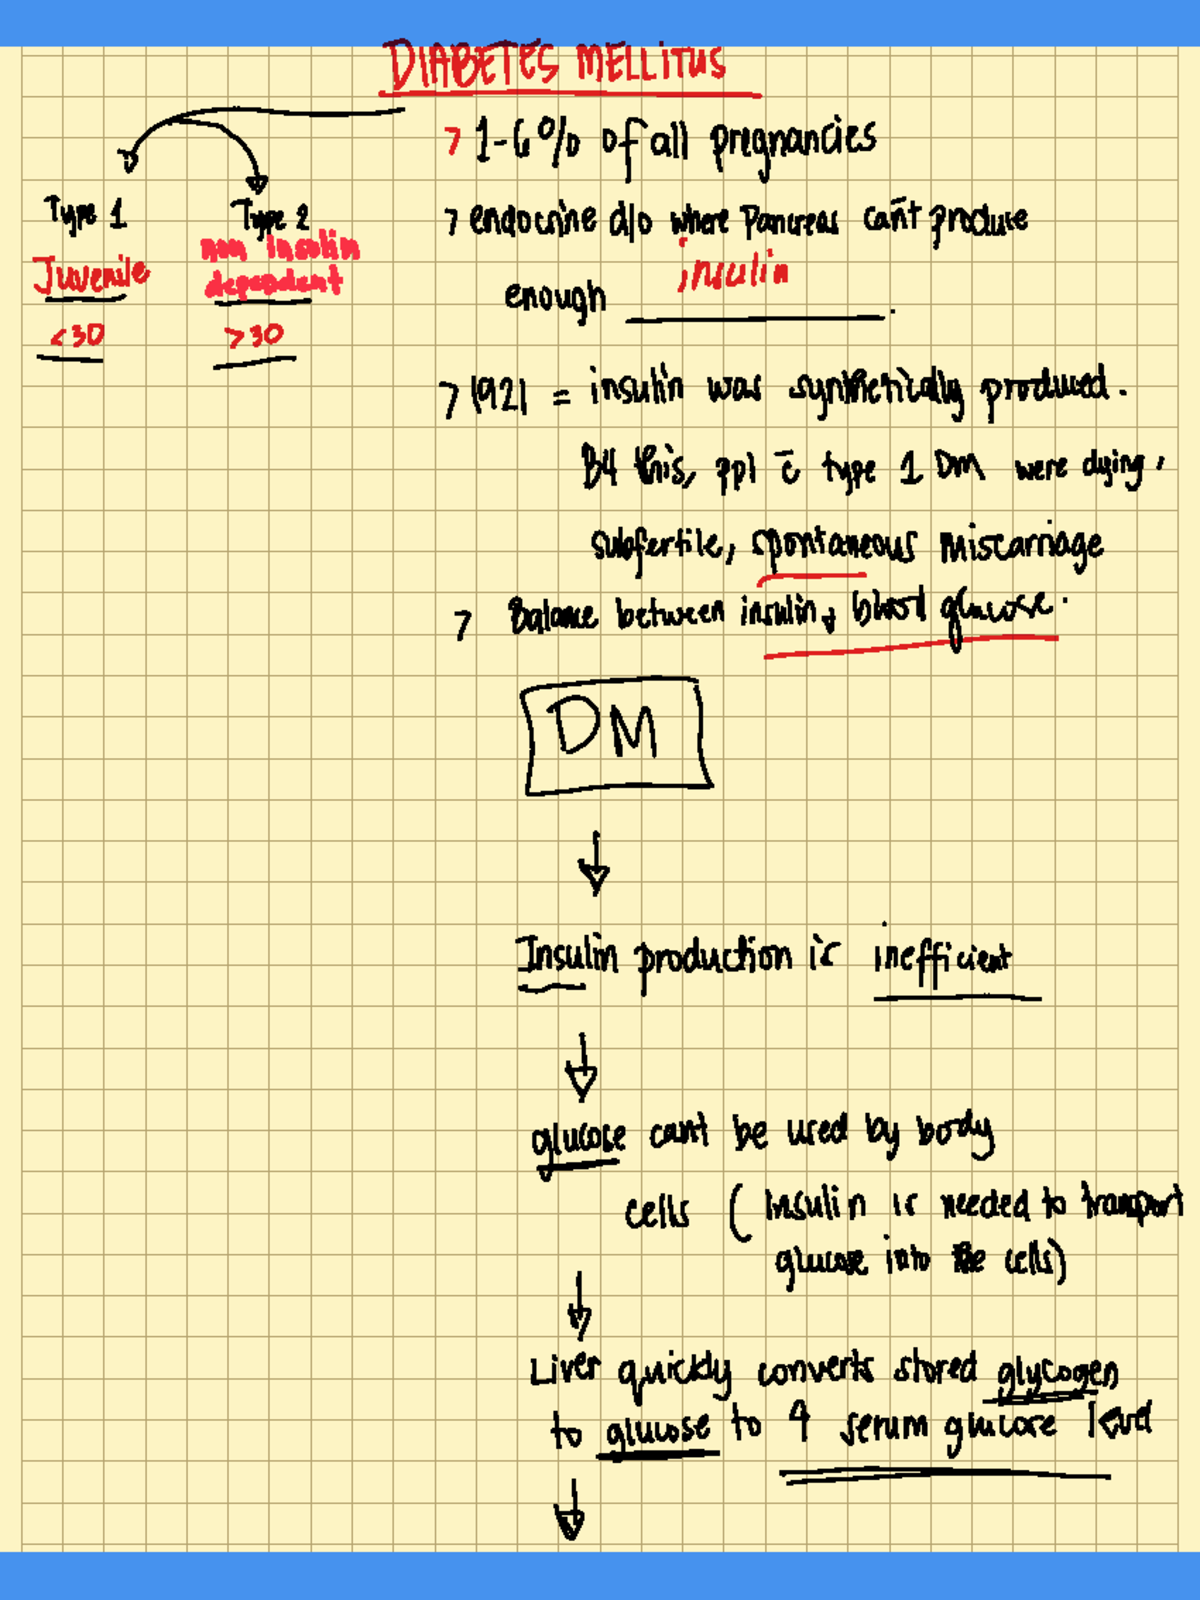 DIABETES MELLITUS
> 1-6% of all pregnancies
Type 1
Juvenile
<30
Type 2
non insulin
dependent
>30
> endocrine d/o where Pancreas can't produce
enough insulin.
> 1921 = insulin was synthetically produced.
B4 this, ppl c̄ type 1 DM were dying,
subfertile, spontaneous miscarriage
> Balance between insulin & blood glucose.
DM
↓
Insulin production is inefficient
↓
glucose can't be used by body
cells (Insulin is needed to transport
glucose into the cells)
↓
Liver quickly converts stored glycogen
to glucose to ↑ serum glucose level
↓